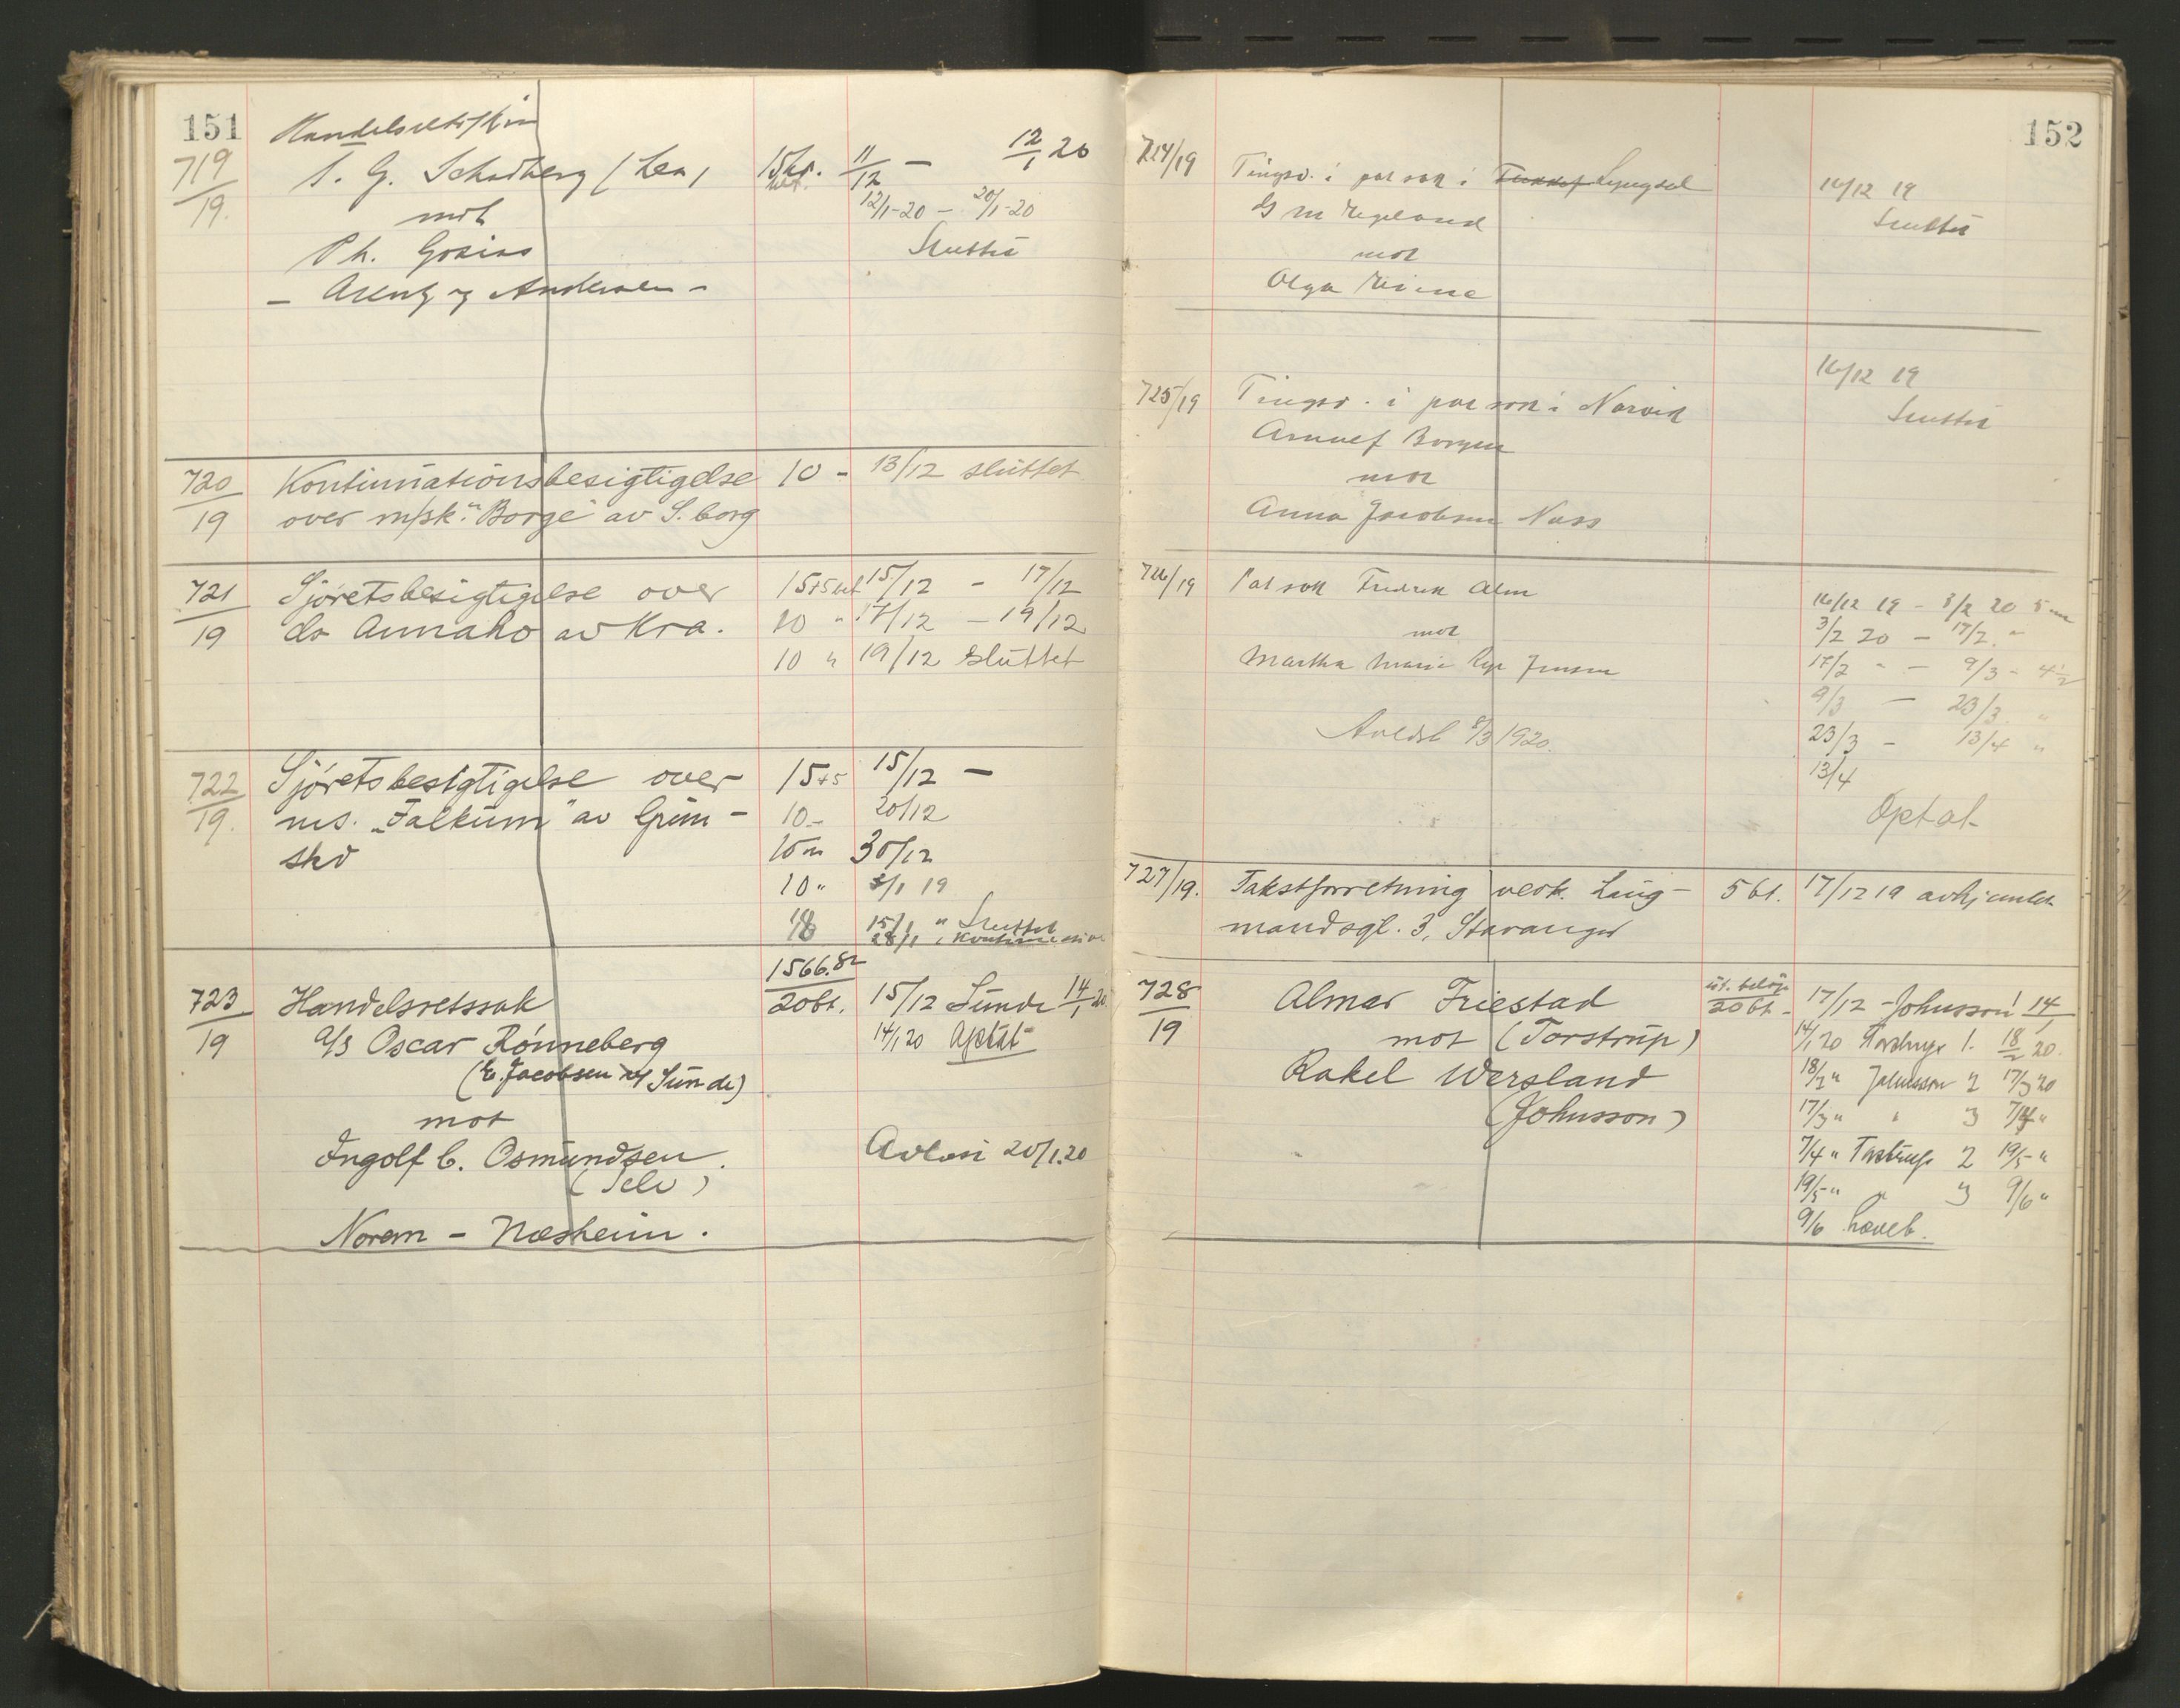 151
719/19.
S. G. Schadberg (Lea)
15kr. 11/12 - 12/1 20
mot
12/1-20 - 20/1-20
Ph.
Sluttet
- og Andersen -
720/19
Kontinuationsbesigtigelse 10 - 13/12 sluttet
over m/sk. "Borge" av S. borg
721/19
Sjøretsbesigtigelse over 15+5 bet 15/12 - 17/12
ds Annaho av Kra. 10 " 17/12 - 19/12
10 " 19/12 sluttet
722/19.
Sjøretsbesigtigelse over 15+5 15/12 -
ms. "Falkum" av Grim- 10- 20/12
stad 30/12
10 " 5/1 19
15/1 " Sluttet
28/1
1566.82
723/19
Handelsretssak 20 bt. 15/12 Sunde 14/1 20
a/s Oscar Rønneberg 14/1 20 Optat
(E. Jacobsen v/ Sunde)
mot
Ingolf C. Osmundsen. Avlæsi 20/1.20
(Selv)
Norem - Næsheim.
152
724/19
Tingsv. i par sak i Lyngdal 16/12 19
Sluttet
mot
Olga
725/19
16/12 19
Tingsv. i par sak i Narvik Sluttet
Arnulf Borgen
mot
Anna Jacobsen Næss
726/19
Par sak Fredrik Alm 16/12 19 - 3/2 20 5
mot 3/2 20 - 17/2 "
Martha Marie Jensen 17/2 " - 9/3 - 4 1/2
9/3 - 23/3 "
8/3 1920. 23/3 - 13/4 "
13/4
Optat
727/19.
Takstforretning vedk. Laug- 5 bt. 17/12 19 avhjemlet
mandsgt. 3, Stavanger
728/19
ut. beløp
Almar Friestad 20 bt - 17/12 - Johnsson 1 14/1
mot (Torstrup) 14/1 20 Torstrup 1. 18/2 20.
Rakel Wersland 18/2 " Johnsson 2 17/3 20
(Johnsson) 17/3 " " 3 7/4 "
7/4 " Torstrup 2 19/5 "
19/5 " " 3 9/6 "
9/6 hævet.